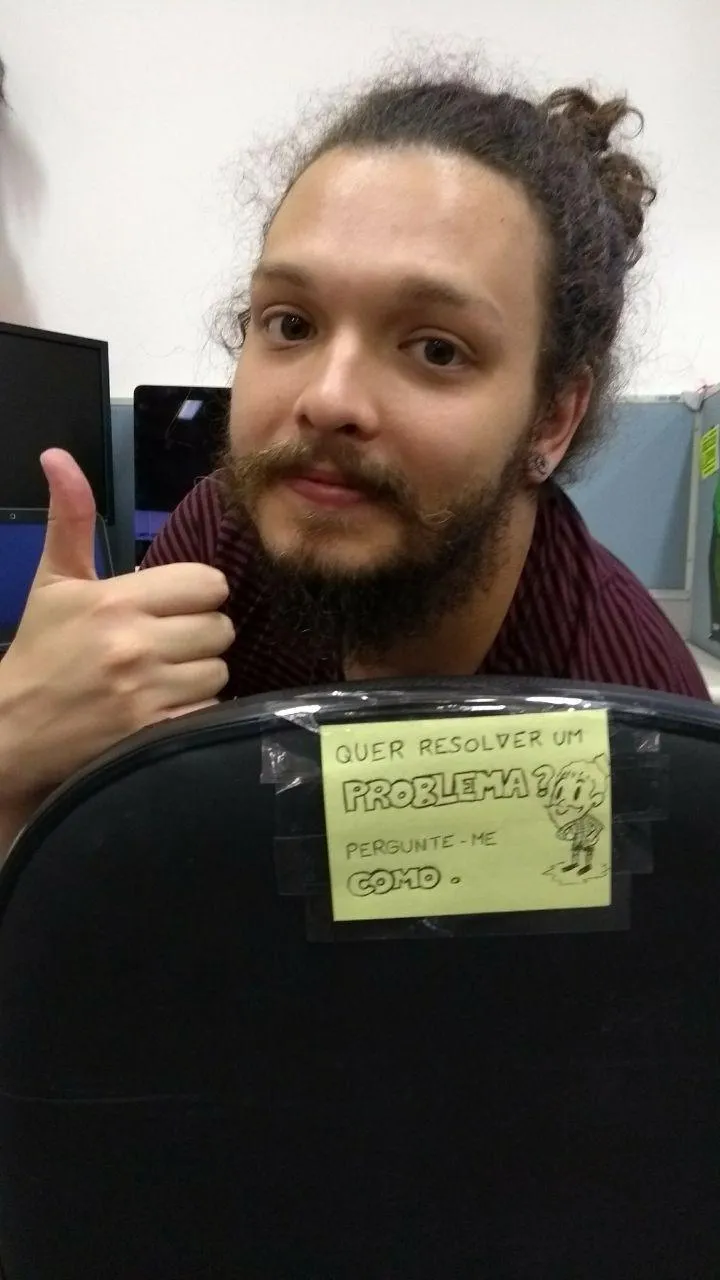 QUER RESOLVER UM
PROBLEMA?
PERGUNTE-ME
COMO.